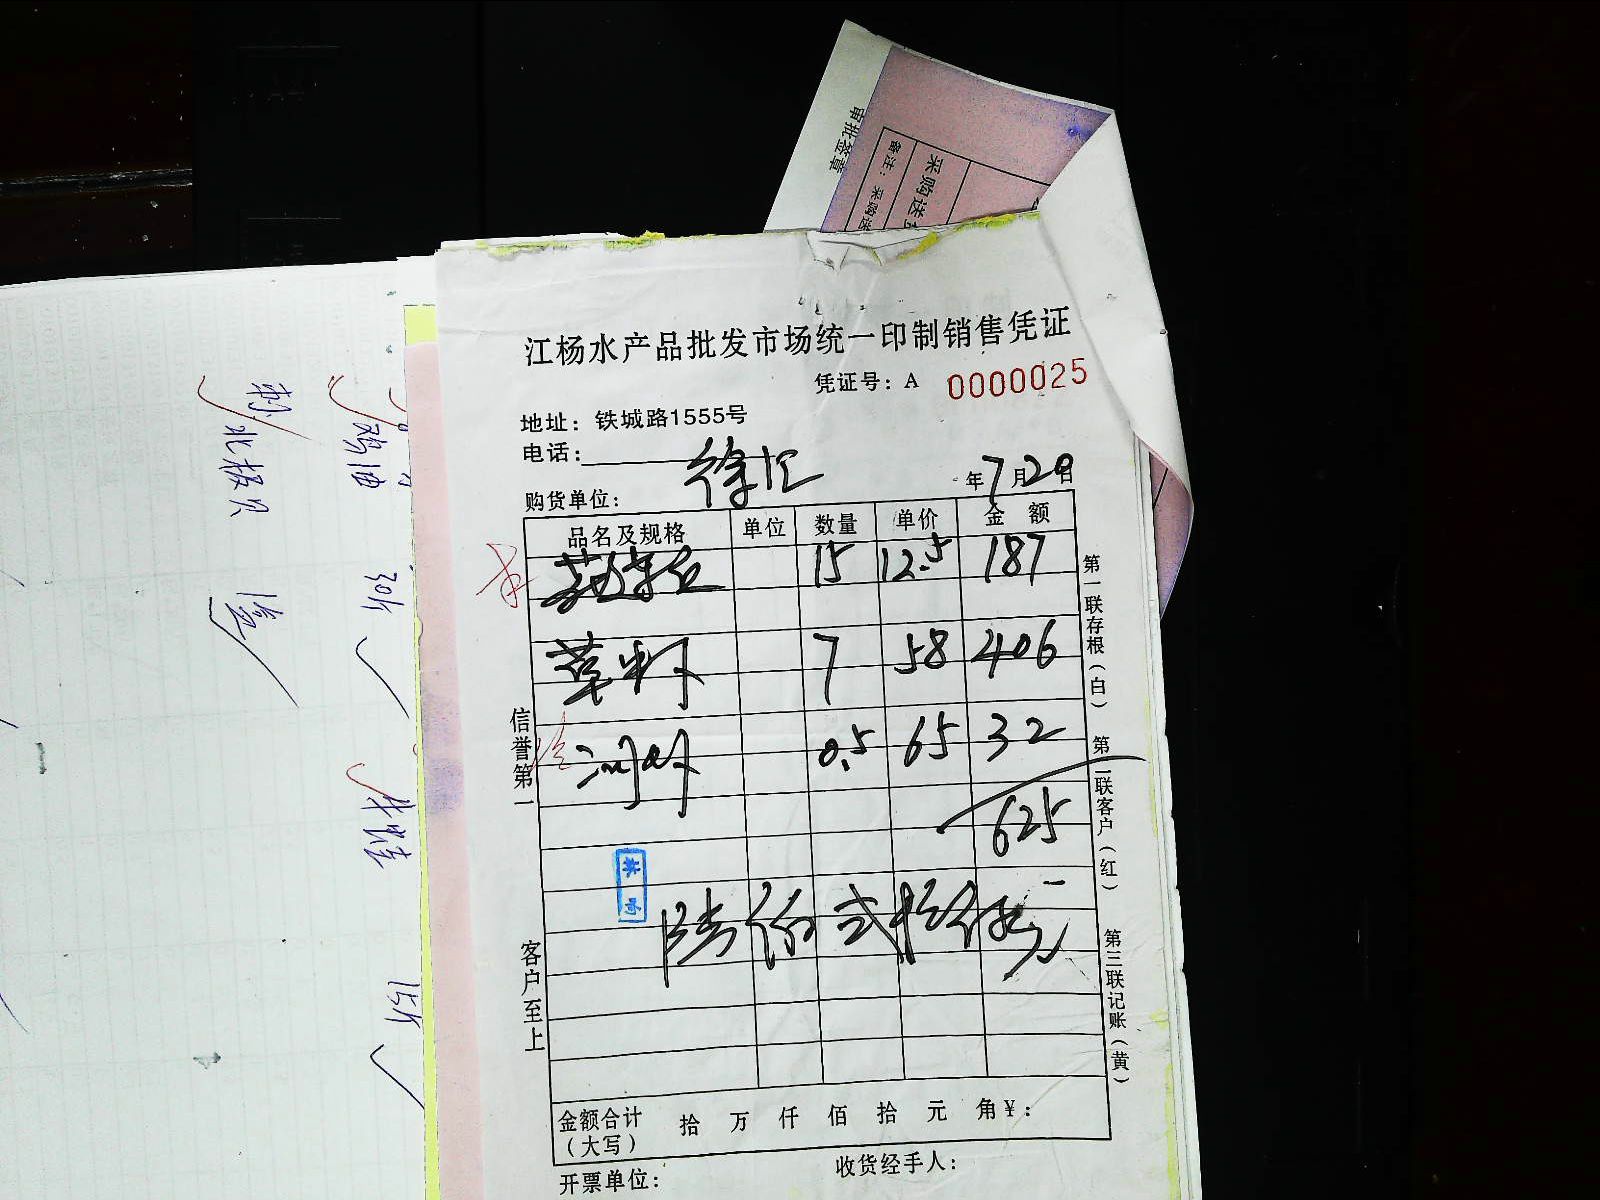 审批签章
备注：采购送
采购送
江杨水产品批发市场统一印制销售凭证
凭证号：A 0000025
地址：铁城路1555号
电话：
购货单位： 徐汇 年7月20日
品名及规格 单位 数量 单价 金额
15 12.5 187
草虾 7 58 406
河虾 0.5 65 32
625
陆佰贰拾伍
金额合计（大写） 拾 万 仟 佰 拾 元 角¥：
开票单位： 收货经手人：
信誉第一 客户至上
第一联存根（白） 第二联客户（红） 第三联记账（黄）
北极贝
鸡油
30斤
15斤